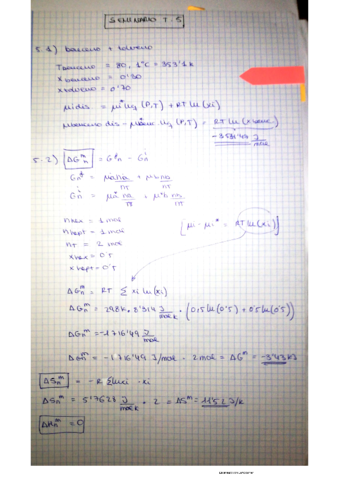 SEMINARIO T.5
5.1) benceno + tolueno
Tbenceno = 80,1ºC = 353'1 K
xbenceno = 0'30
xtolueno = 0'70
μi dis = μi* líq (P,T) + RT ln (xi)
μbenceno dis - μbenc líq (P,T) = RT ln (xbenc)
-3534'49 J/mol
5.2) ΔGnᵐ = Gn⁺ - Gn*
Gn⁺ = μa na/nT + μb nb/nT
Gn* = μa* na/nT + μb* nb/nT
nhex = 1 mol
nhept = 1 mol
nT = 2 mol
xhex = 0'5
xhept = 0'5
[μi - μi* = RT ln (xi)]
ΔGnᵐ = RT Σ xi ln (xi)
ΔGnᵐ = 298K · 8'314 J/mol K · (0,5 ln (0'5) + 0'5 ln (0'5))
ΔGnᵐ = -1716'49 J/mol
ΔGnᵐ = -1716'49 J/mol · 2 mol = ΔGᵐ = -3'43 KJ
ΔSnᵐ = -R Σ ln xi · xi
ΔSnᵐ = 5'7628 J/mol K · 2 = ΔSᵐ = 11'52 J/K
ΔHnᵐ = 0